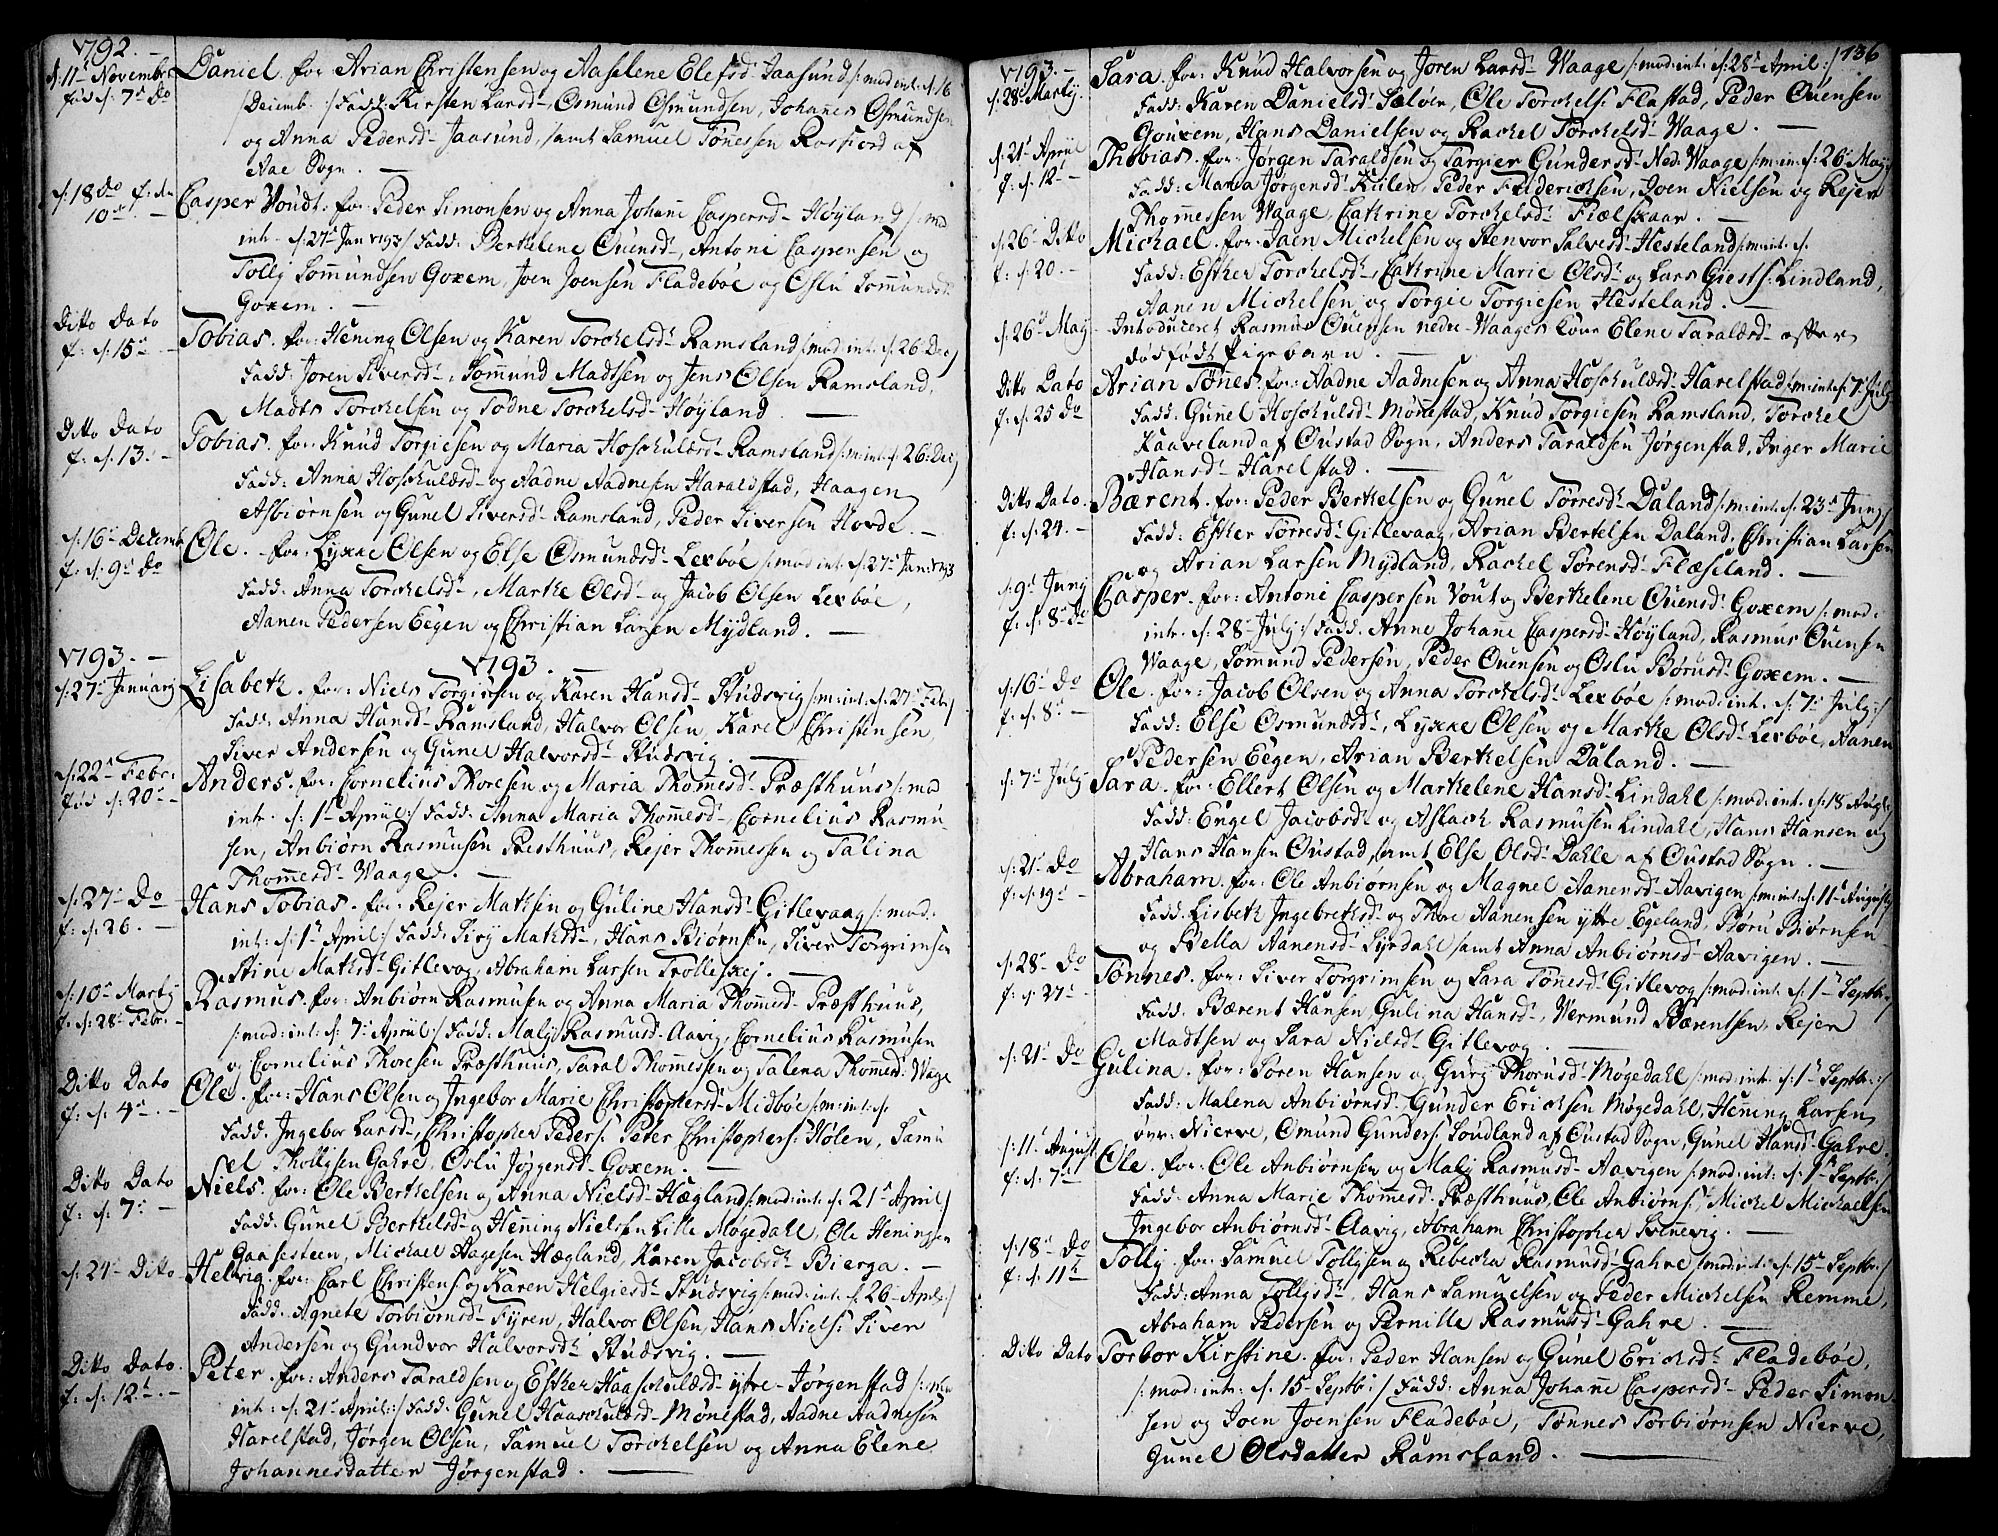 1792. —
d: 11t Novembr. Daniel. for: Arian Christensen og Aaselene Elefsd: Jaasund /: mod: int: d: 16
fød d. 7de Do Decemb. :/ Fadd: Kirsten Larsd:, Osmund Osmundsen, Johanes Osmundsen
og Anna Pedersd: Jaasund, samt Samuel Tönessen Rosfiord af
Aae Sogn. —
d: 18 Do f: d. Casper Voudt. for: Peder Simonsen og Anna Johane Caspersd: Höyland /: mod
10de — intr. d: 27de Jan 1793 :/ Fadd: Berthelene Ouensd:, Antoni Caspersen og
Tollij Sommundsen Goxem, Joen Joensen Fladeböe og Oslu Sommundsd:
Goxem. —
Ditto Dato Tobias. for: Hening Olsen og Karen Torchelsd: Ramsland /: mod: int: d: 26 Dec:/
f: d: 15de — Fadd: Joren Siversd:, Sommund Madtsen og Jens Olsen Ramsland,
Madts Torchelsen og Todne Torchelsd: Höyland. —
Ditto Dato Tobias. for: Knud Torgiesen og Maria Hoschuldsd: Ramsland /: m: int: d: 26: Dec:/
f: d: 13. — Fadd: Anna Hoschuldsd: og Aadne Aadnesen Haraldstad, Haagen
Asbiörnsen og Gunel Siversd: Ramsland, Peder Siversen Hovde. —
d: 16de Decemb Ole. for: Lyxxe Olsen og Else Osmundsd: Lexböe /: mod: int: d: 27de Jan: 1793
f: d: 9de Do Fadd: Anna Torchelsd:, Marthe Olsd: og Jacob Olsen Lexböe,
Aanen Pedersen Eegen og Christian Larsen Mydland. —
1793. — 1793. —
d: 27de Januarij Lisabeth. for: Niels Torgiersen og Karen Hansd: Studsvig /: m: int: d: 27de Febr:/
Fadd: Anna Hansd: Ramsland, Halvor Olsen, Karel Christensen,
Siver Andersen og Gunel Halvorsd: Studsvig. —
d: 22de Febr: Anders. for: Cornelius Thoresen og Maria Thomesd: Præsthuus /: mod
fød d: 20de — intr. d: 1de Apriil :/ Fadd: Anna Maria Thomesd:, Cornelius Rasmu-
sen, Anbiörn Rasmusen Presthuus, Rejer Thomessen og Talina
Thomesd: Waage. —
d: 27de Do Hans Tobias. for: Rejer Mathsen og Guline Hansd: Gitlevaag /: mod:
f: d: 26. — int: d: 1de April :/ Fadd: Sirij Mathsd:, Hans Biörnsen, Siver Torgrimsen
Stine Mathsd: Gitlevog, Abraham Larsen Trolleskej. —
d: 10de Martij Rasmus. for: Anbiörn Rasmusen og Anna Maria Thomesd: Præsthuus,
f: d: 28de Febr. — /: mod: int: d: 7de Apriil :/ Fadd: Malij Rasmusd: Aavig, Cornelius Rasmusen
og Cornelius Thoresen Præsthuus, Taral Thomessen og Talena Thomesd: Wage
Ditto Dato Ole. for: Hans Olsen og Ingebor Marie Christophersd: Midböe /: m: int: d:
f: d: 4de. — Fadd: Ingebor Larsd:, Christopher Peders: Peter Christophers: Holen, Samu
el Thollysen Gahre, Oslu Jörgensd: Goxem. —
Ditto Dato Niels. for: Ole Berthelsen og Anna Nielsd: Hægland /: mod: int: d: 21de April :/
f: d: 7de — Fadd: Gunel Berthelsd: og Hening Nielsen Lille Mögedahl, Ole Heningsen
Gaasesteen, Michael Aagesen Hægland, Karen Jacobsd: Bierga. —
d: 24de Ditto Helvig. for: Carl Christens: og Karen Helgiesd: Studsvig /: mod: int: d: 26de Apr:/
Fadd: Agnete Torbiörnsd: Fyren, Halvor Olsen, Hans Niels: Siver
Andersen og Gundvor Halvorsd: Studsvig. —
Ditto Dato. Peter. for: Anders Taraldsen og Esther Haaschuldsd: ytre Jörgenstad /: m
f: d: 12t. — int: d: 21de April :/ Fadd: Gunel Haaschuldsd: Mönestad, Aadne Aadnesen
Harelstad, Jörgen Olsen, Samuel Torchelsen og Anna Elene
Johannesdatter Jörgenstad. —
1793. — Sara. for: Knud Halvorsen og Joren Larsd: Waage /: mod: int: d: 28de April :/ 136
d: 28de Martij. Fadd: Karen Danielsd: Selöer, Ole Torchels: Flastad, Peder Ouensen
Goxem, Hans Danielsen og Rachel Torchelsd: Waage. —
d: 21de Apriil Thobias. for: Jörgen Taraldsen og Targier Gundersd: Ned: Waage /: m: in: d: 26de Maij
f: d: 12de — Fadd: Maria Jörgensd: Kiilen, Peder Friderichsen, Joen Nielsen og Rejer
Thomessen Waage, Cathrine Torchelsd: Fiælskaar. —
d: 26de Ditto Michael. for: Jaen Michelsen og Stenvor Salvesd: Hesteland /: m: int: d.
f: d: 20. — Fadd: Esther Torchelsd:, Cathrine Marie Olsd: og Lars Giests: Lindland,
Aanen Michelsen og Torgie Torgiesen Hesteland. —
d: 26de Maij Introduceret Rasmus Ouensen nedre Waages Kone Elene Taraldsd: efter
dödfödt Pigebarn. —
Ditto Dato Arian Tönes. for: Aadne Aadnesen og Anna Hoschuldsd: Harelstad /: m: int: d: 7de Julij
f: d: 25 Do Fadd: Gunel Hoschulsd: Mönestad, Knud Torgiesen Ramsland, Torchel
Kaaveland af Oustad Sogn, Anders Taraldsen Jörgenstad, Inger Marie
Hansd: Harelstad. —
Ditto Dato. Bærent. for: Peder Berthelsen og Gunel Torresd: Daland /: m: int: d: 23de Junij
f: d: 24. — Fadd: Esther Torresd: Gitlevaag, Arian Bertelsen Daland, Christian Larsen
og Arian Larsen Mydland, Rachel Sörensd: Flæseland. —
d: 9de Junij Casper. for: Antoni Caspersen Vout og Berthelene Ouensd: Goxem /: mod:
f: d: 8de Do intr. d: 28de Julij :/ Fadd: Anne Johane Caspersd: Höyland, Rasmus Ouensen
Waage, Sommund Pedersen, Peder Ouensen og Oslu Börusd: Goxem. —
d: 16de Do Ole. for: Jacob Olsen og Anna Torchelsd: Lexböe /: mod: int. d: 7de Julij :/
f: d: 8de — Fadd: Else Osmundsd:, Lyxxe Olsen og Marthe Olsd: Lexböe, Aanen
Pedersen Eegen, Arian Berthelsen Daland. —
d: 7de Julij Sara. for: Ellert Olsen og Marthelene Hansd: Lindahl /: mod: int: d: 18 Aug:/
Fadd: Engel Jacobsd: og Aslach Rasmusen Lindahl, Hans Hansen og
Hans Hansen Oustad, samt Else Olsd: Dahle af Oustad Sogn. —
d: 21de Do Abraham. for: Ole Anbiörnsen og Magnel Aanensd: Aavigen /: m: int: d: 11de Augusty
f: d: 19de — Fadd: Lisbeth Ingebrethsd: og Thore Aanensen ytre Egeland, Böru Biörnsen
og Bella Aanensd: Syrdahl samt Anna Anbiörnsd: Aavigen. —
d: 28de Do Tönnes. for: Siver Torgrimsen og Sara Tönesd: Gitlevog /: mod: int. d: 1de Septbr:/
f: d: 27de — Fadd: Bærent Hansen, Gulina Hansd:, Vermund Bærentsen, Rejer
Madtsen og Sara Nielsd: Gitlevog. —
d: 21de Do Gulina. for: Sören Hansen og Gurij Thorusd: Mögedahl /: mod: int: d: 1de Septbr: :/
Fadd: Malena Anbiörnsd:, Gunder Erichsen Mögedahl, Henning Larsen
övr: Nierve, Omund Gunders: Soudland af Oustad Sogn, Gunel Hansd: Gahre.
d: 11de August Ole. for: Ole Anbiörnsen og Malij Rasmusd: Aavigen /: mod: int: d: 1de Septbr: :/
f: d: 7de — Fadd: Anna Marie Thomesd: Præsthuus, Ole Anbiörns:, Michel Michaelsen
Ingebor Anbiörnsd: Aavig, Abraham Christopher Svinevig. —
d: 18de Do Tollij. for: Samuel Tollijsen og Rebecka Rasmusd: Gahre /: mod: int: d: 15de Septbr: :/
f: d: 11te Fadd: Anna Tollysd:, Hans Samuelsen og Peder Michelsen Remme,
Abraham Pedersen og Pernille Rasmusd: Gahre. —
Ditto Dato Torbor Kirstine. for: Peder Hansen og Gunel Erichsd: Fladeböe,
/: mod: intr: d. 15de Septbr: :/ Fadd: Anna Johane Caspersd: Peder Simon-
sen og Joen Joensen Fladeböe, Tönnes Torbiörnsen Nierve,
Gunel Olsdatter Ramsland. —